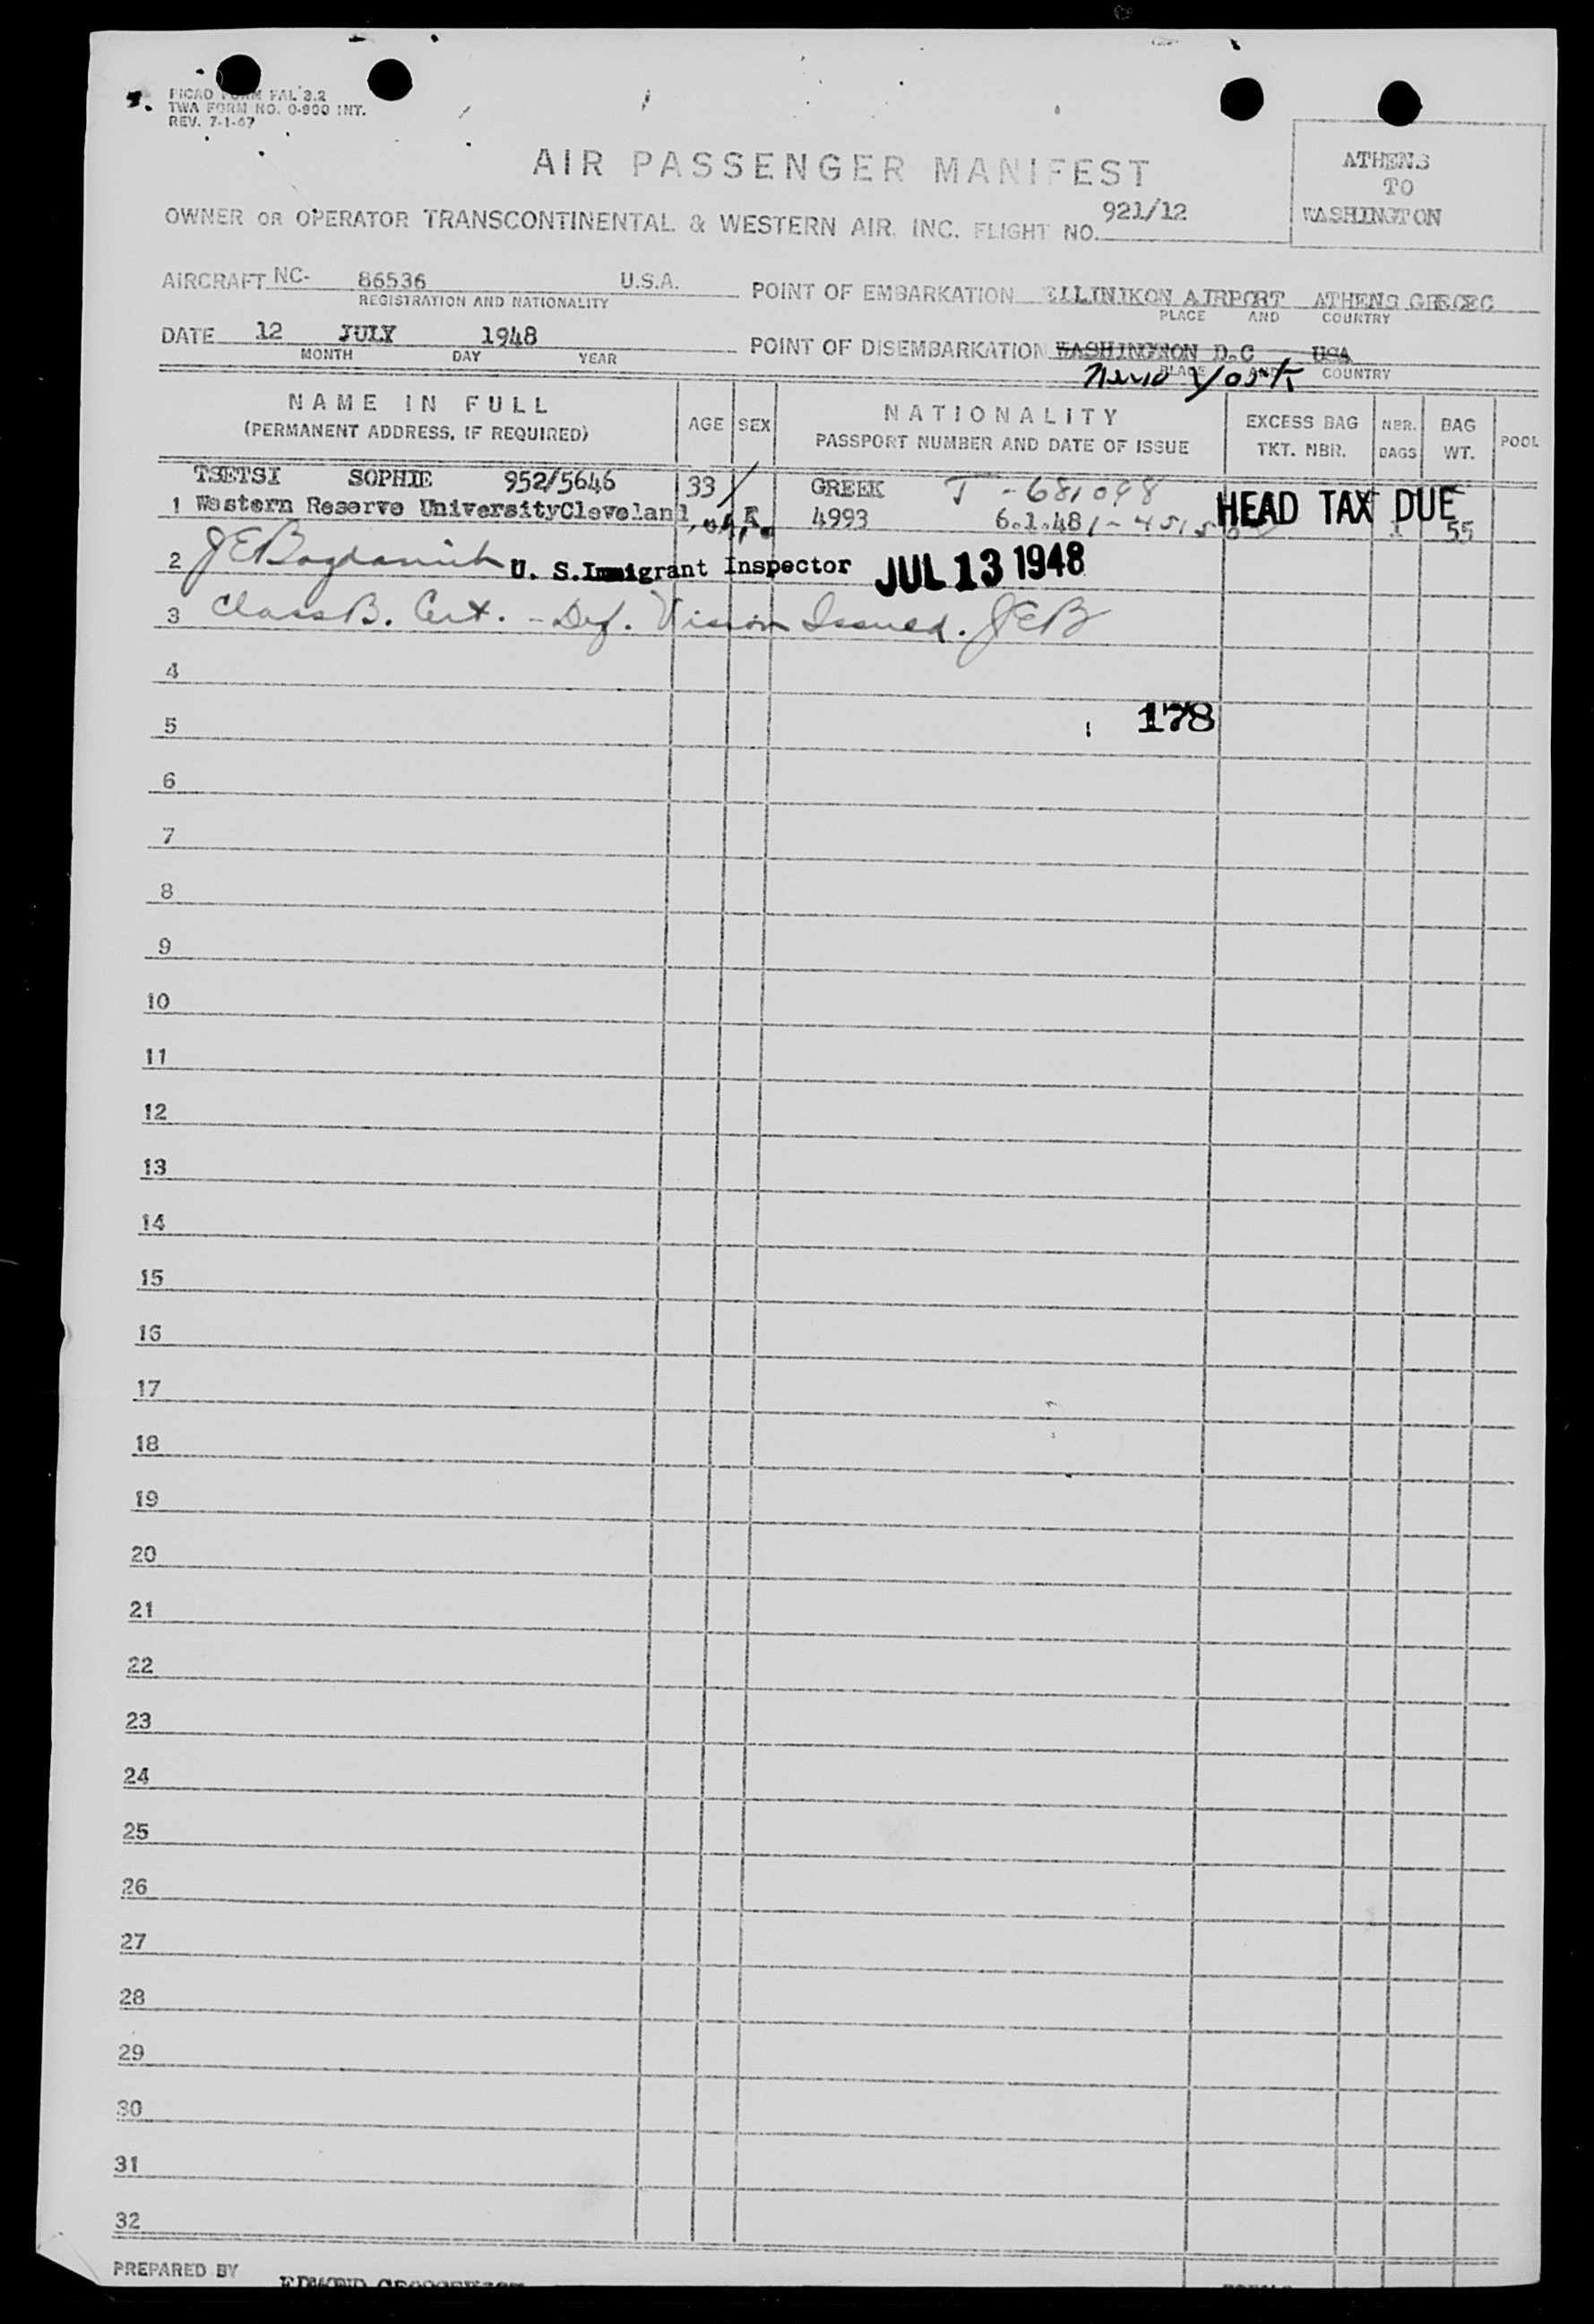 PICAO FORM FAL 3.2
TWA FORM NO. 0-900 INT.
REV. 7-1-47
AIR PASSENGER MANIFEST
ATHENS
TO
WASHINGTON
OWNER OR OPERATOR TRANSCONTINENTAL & WESTERN AIR, INC. FLIGHT NO. 921/12
AIRCRAFT NC- 86536 U.S.A.
REGISTRATION AND NATIONALITY
POINT OF EMBARKATION ELLINIKON AIRPORT ATHENS GRECEC
PLACE AND COUNTRY
DATE 12 JULY 1948
MONTH DAY YEAR
POINT OF DISEMBARKATION WASHINGTON D.C USA
PLACE AND COUNTRY
New York
NAME IN FULL
(PERMANENT ADDRESS, IF REQUIRED)
AGE SEX
NATIONALITY
PASSPORT NUMBER AND DATE OF ISSUE
EXCESS BAG
TKT. NBR.
NBR.
BAGS
BAG
WT.
POOL
TSETSI SOPHIE 952/5646 33 GREEK T - 681098
1 Western Reserve UniversityCleveland F. 4993 6.1.48 HEAD TAX DUE 55
2 JEBogdanich U. S. Immigrant Inspector JUL 13 1948
3 Class B. Cert. - Def. Vision Issued. JEB
4
5 178
6
7
8
9
10
11
12
13
14
15
16
17
18
19
20
21
22
23
24
25
26
27
28
29
30
31
32
PREPARED BY
EDMOND